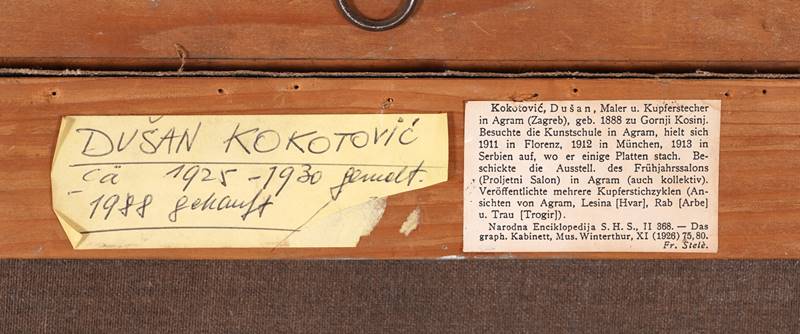 DUŠAN KOKOTOVIĆ
cä 1925-1930 gemalt.
1988 gekauft
Kokotović, Dušan, Maler u. Kupferstecher
in Agram (Zagreb), geb. 1888 zu Gornji Kosinj.
Besuchte die Kunstschule in Agram, hielt sich
1911 in Florenz, 1912 in München, 1913 in
Serbien auf, wo er einige Platten stach. Be-
schickte die Ausstell. des Frühjahrssalons
(Proljetni Salon) in Agram (auch kollektiv).
Veröffentlichte mehrere Kupferstichzyklen (An-
sichten von Agram, Lesina [Hvar], Rab [Arbe]
u. Trau [Trogir]).
Narodna Enciklopedija S. H. S., II 368. — Das
graph. Kabinett, Mus. Winterthur, XI (1926) 75, 80.
Fr. Stelè.